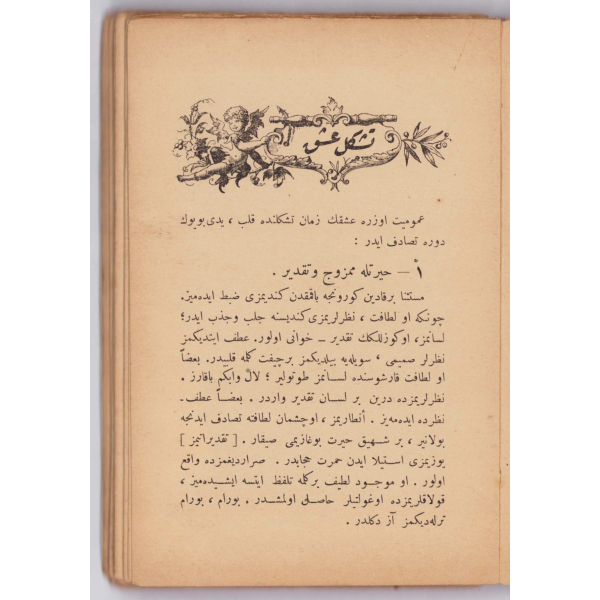 تشكل عشق
عموميت اوزره عشقك زمان تشكلنده قلب ، يدى بويوك
دوره تصادف ايدر :
اً — حيرتله ممزوج وتقدير .
مستثنا بر قادين كورونجه باقمقدن كنديمزى ضبط ايده ميز.
چونكه او لطافت ، نظرلريمزى كنديسنه جلب وجذب ايدر؛
لسانمز، او كوزللكك تقدير – خوانى اولور. عطف ايتديكمز
نظرلر صميمى ، سويله يه بيلديكمز بر چيفت كلمه قلبيدر. بعضاً
او لطافت قارشوسنده لسانمز طوتولير ؛ لال وابكم باقارز .
نظرلريمزده درين بر لسان تقدير واردر . بعضاً عطف ـ
نظرده ايده مه يز . أنظاريمز ، او چشمان لطافته تصادف ايدنجه
بولانير ، بر شهيق حيرت بوغازيمى صيقار . [ تقديراتيمز ]
يوزيمزى استيلا ايدن حمرت حجابدر . صرارديغمزده واقع
اولور . او موجود لطيف بر كلمه تلفظ ايتسه ايشيده ميز ،
قولاقلريمزده اوغولتيلر حاصلى اولمشدر . بورام ، بورام
ترله ديكمز آز دكلدر .